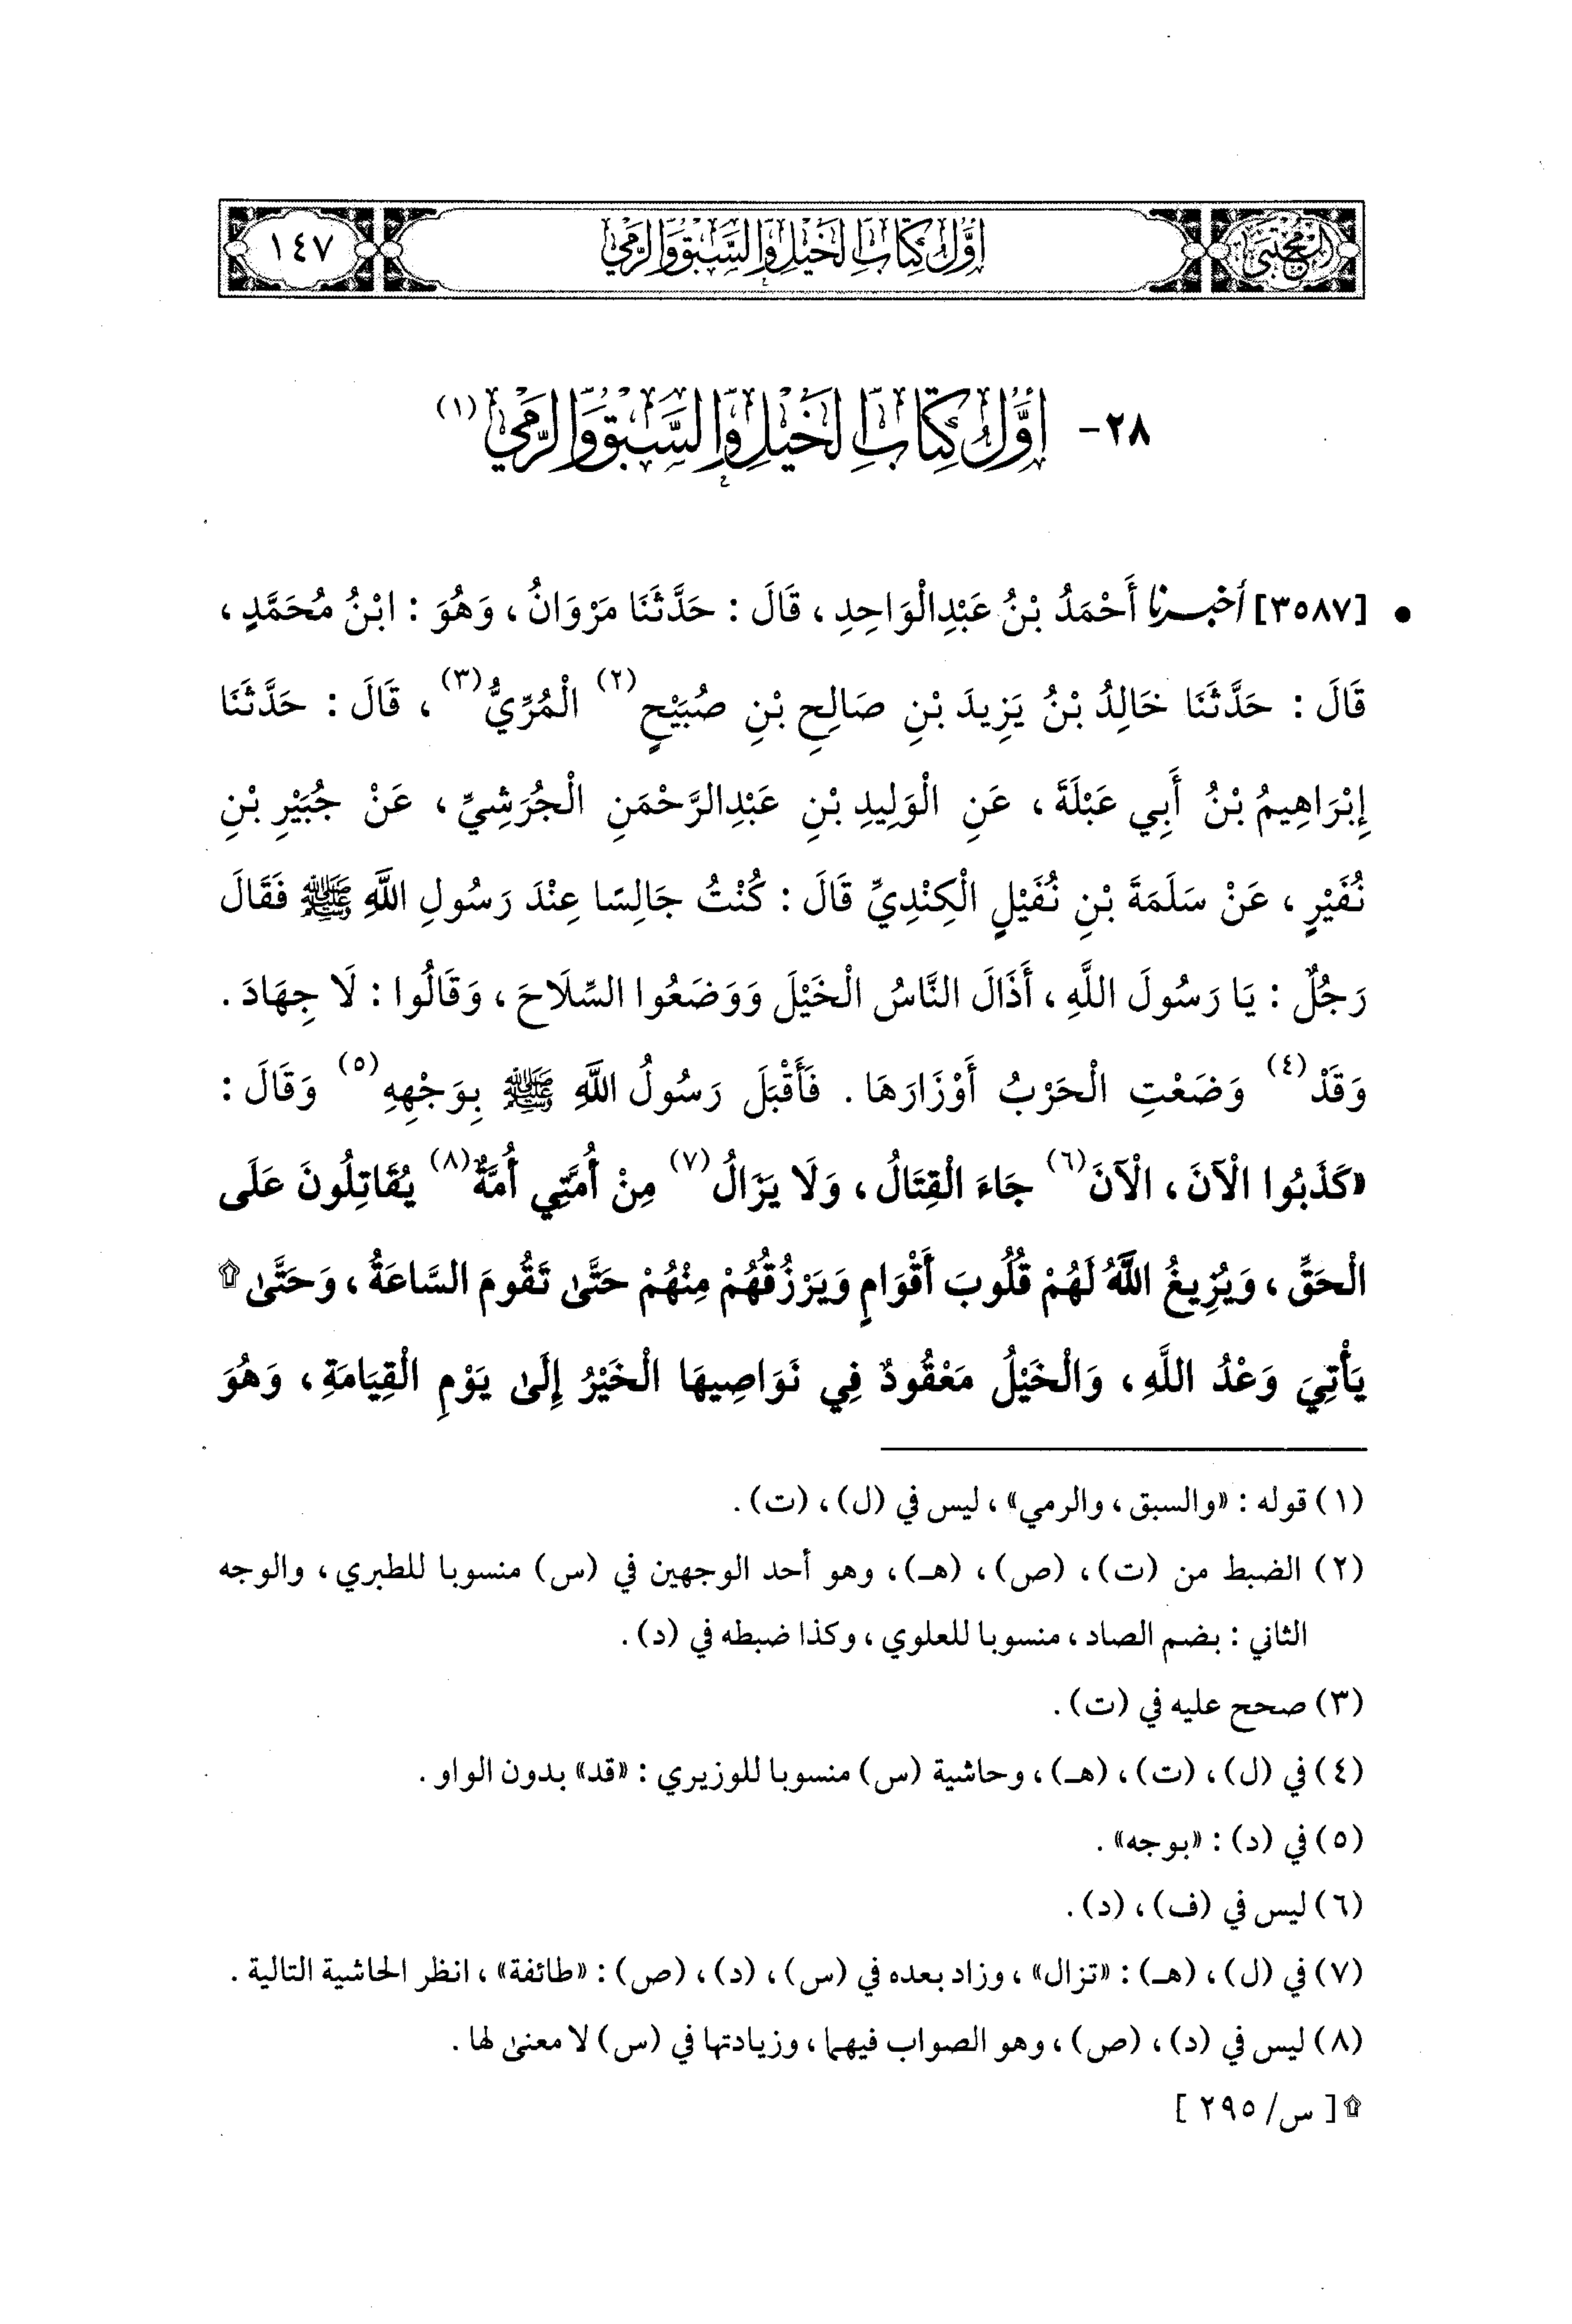 المجتبى
أول كتاب الخيل والسبق والرمي
١٤٧
٢٨- أَوَّلُ كِتَابِ الخَيْلِ وَالسَّبْقِ وَالرَّمْيِ (١)
• [٣٥٨٧] أخبرنا أَحْمَدُ بْنُ عَبْدِالْوَاحِدِ، قَالَ : حَدَّثَنَا مَرْوَانُ، وَهُوَ : ابْنُ مُحَمَّدٍ،
قَالَ : حَدَّثَنَا خَالِدُ بْنُ يَزِيدَ بْنِ صَالِحِ بْنِ صُبَيْحٍ (٢) الْمُرِّيُّ (٣)، قَالَ : حَدَّثَنَا
إِبْرَاهِيمُ بْنُ أَبِي عَبْلَةَ، عَنِ الْوَلِيدِ بْنِ عَبْدِالرَّحْمَنِ الْجُرَشِيِّ، عَنْ جُبَيْرِ بْنِ
نُفَيْرٍ، عَنْ سَلَمَةَ بْنِ نُفَيْلٍ الْكِنْدِيِّ قَالَ : كُنْتُ جَالِسًا عِنْدَ رَسُولِ اللَّهِ ﷺ فَقَالَ
رَجُلٌ : يَا رَسُولَ اللَّهِ، أَذَالَ النَّاسُ الْخَيْلَ وَوَضَعُوا السِّلَاحَ، وَقَالُوا : لَا جِهَادَ.
وَقَدْ (٤) وَضَعْتِ الْحَرْبُ أَوْزَارَهَا. فَأَقْبَلَ رَسُولُ اللَّهِ ﷺ بِوَجْهِهِ (٥) وَقَالَ :
«كَذَبُوا الْآنَ، الْآنَ (٦) جَاءَ الْقِتَالُ، وَلَا يَزَالُ (٧) مِنْ أُمَّتِي أُمَّةٌ (٨) يُقَاتِلُونَ عَلَى
الْحَقِّ، وَيُزِيغُ اللَّهُ لَهُمْ قُلُوبَ أَقْوَامٍ وَيَرْزُقُهُمْ مِنْهُمْ حَتَّى تَقُومَ السَّاعَةُ، وَحَتَّى ۩
يَأْتِيَ وَعْدُ اللَّهِ، وَالْخَيْلُ مَعْقُودٌ فِي نَوَاصِيهَا الْخَيْرُ إِلَى يَوْمِ الْقِيَامَةِ، وَهُوَ
(١) قوله : «والسبق، والرمي»، ليس في (ل)، (ت).
(٢) الضبط من (ت)، (ص)، (هـ)، وهو أحد الوجهين في (س) منسوبا للطبري، والوجه
الثاني : بضم الصاد، منسوبا للعلوي، وكذا ضبطه في (د).
(٣) صحح عليه في (ت).
(٤) في (ل)، (ت)، (هـ)، وحاشية (س) منسوبا للوزيري : «قد» بدون الواو.
(٥) في (د) : «بوجه».
(٦) ليس في (ف)، (د).
(٧) في (ل)، (هـ) : «تزال»، وزاد بعده في (س)، (د)، (ص) : «طائفة»، انظر الحاشية التالية.
(٨) ليس في (د)، (ص)، وهو الصواب فيهما، وزيادتها في (س) لا معنى لها.
۩ [ س/ ٢٩٥ ]